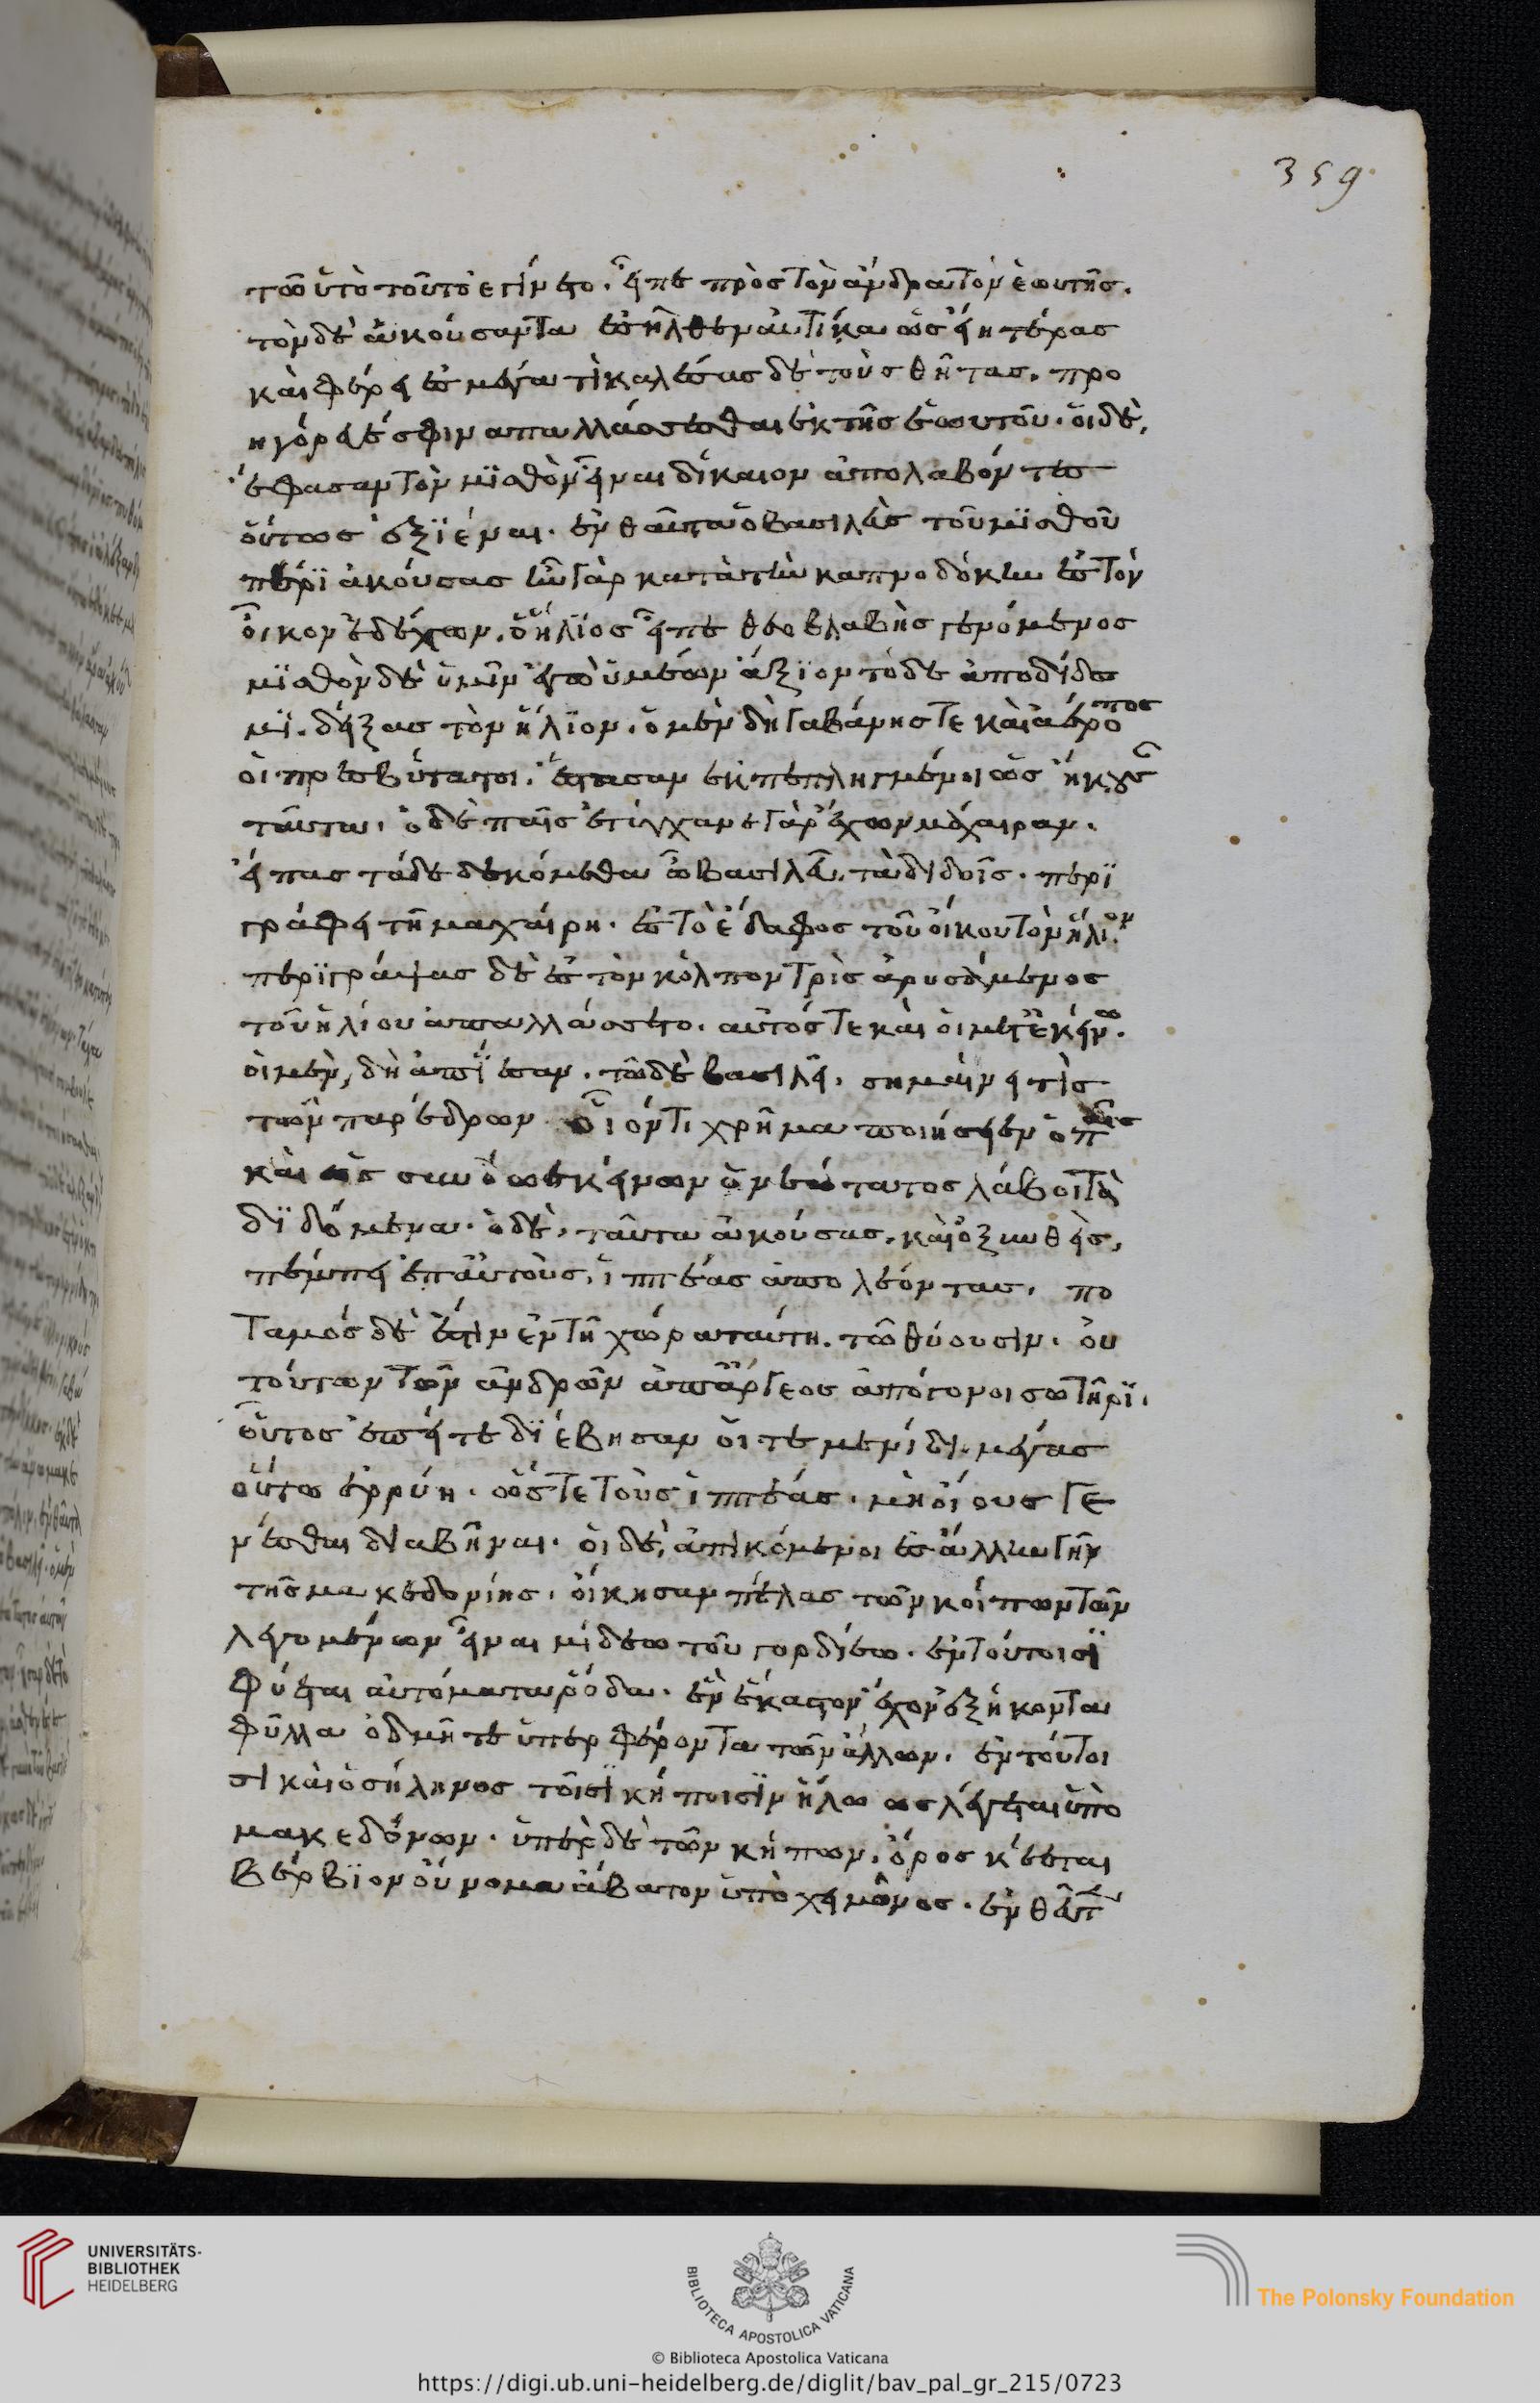 359
τωὐτὸ τοῦτο ἐγίνετο. εἶπε πρὸς τὸν ἄνδρα τὸν ἑωυτῆς.
τὸν δὲ ἀκούσαντα ἐσῆλθεν αὐτίκα ὡς εἴη τέρας
καὶ φέρει ἐς μέγα τὶ καλέσας δὲ τοὺς θῆτας. προ
ηγόρευέ σφιν ἀπαλλάσσεσθαι ἐκ τῆς ἑωυτοῦ. οἱ δὲ,
ἔφασαν τὸν μισθὸν εἶναι δίκαιον ἀπολαβόντες
οὕτως ἐξϊέναι. ἐνθαῦτα ὁ βασιλεὺς τοῦ μισθοῦ
πέρϊ ἀκούσας ἦν γὰρ κατὰ τὴν καπνοδόκην ἐς τὸν
οἶκον ἐσέχων. ὁ ἥλϊος εἶπε θεοβλαβὴς γενόμενος
μϊσθὸν δὲ ὑμῖν ἐγὼ ὑμέων ἄξϊον τόδε ἀποδίδω
μϊ. δείξας τὸν ἥλϊον. ὁ μὲν δὴ γαβάνης τε καὶ ἀέροπος
οἱ πρεσβύτατοι. ἕστασαν ἐκπεπληγμένοι ὡς ἤκουσαν
ταῦτα. ὁ δὲ παῖς ἐτύγχανε γὰρ ἔχων μάχαιραν.
εἴπας τάδε δεκόμεθα ὦ βασιλεῦ. τὰ διδοῖς. περϊ
γράφει τῆ μαχαίρη. ἐς τὸ ἔδαφος τοῦ οἴκου τὸν ἥλιον.
περϊγράψας δὲ ἐς τὸν κόλπον τρὶς ἀρυσάμενος
τοῦ ἡλίου ἀπαλλάσσετο. αὐτός τε καὶ οἱ μετ' ἐκείνου.
οἱ μὲν, δὴ ἀπήϊσαν. τῶ δὲ βασιλέϊ. σημαίνει τὶς
τῶν παρέδρων οἷόν τι χρῆμα ποιήσειεν ὁ παῖς
καὶ ὡς σὺν νόω ἐκείνων ὁ νεώτατος λάβοι τὰ
δϊδόμενα. ὁ δὲ, ταῦτα ἀκούσας. καὶ ὀξυνθεὶς,
πέμπει ἐπ' αὐτοὺς. ἱππέας ἀπολέοντας. πο
ταμός δὲ ἐστιν ἐν τῆ χώρα ταύτη. τῶ θύουσιν. οἱ
τούτων τῶν ἀνδρῶν ἀπ' ἄργεος ἀπόγονοι σωτῆρϊ.
οὗτος ἐπεί τε δϊέβησαν οἱ τεμενίδαι μέγας
οὕτω ἐρρύη. ὥστε τοὺς ἱππέας. μὴ οἵους γε
νέσθαι διαβῆναι. οἱ δὲ, ἀπικόμενοι ἐς ἄλλην γῆν
τῆς μακεδονίης. οἴκησαν πέλας τῶν κήπων τῶν
λεγομένων εἶναι μίδεω τοῦ γορδίεω. ἐν τοῖσι
φύεται αὐτόματα ῥόδα. ἓν ἕκαστον ἔχον ἑξήκοντα
φύλλα ὀδμῆ τε ὑπερφέροντα τῶν ἄλλων. ἐν τούτοι
σι καὶ ὁ σήληνος τοῖσϊ κήποισϊν ἥλω ὡς λέγεται ὑπὸ
μακεδόνων. ὑπὲρ δὲ τῶν κήπων. ὄρος κέεται
βέρβϊον οὔνομα ἄβατον ὑπὸ χειμῶνος. ἐνθεῦτεν
UNIVERSITÄTS-
BIBLIOTHEK
HEIDELBERG
BIBLIOTECA APOSTOLICA VATICANA
The Polonsky Foundation
© Biblioteca Apostolica Vaticana
https://digi.ub.uni-heidelberg.de/diglit/bav_pal_gr_215/0723